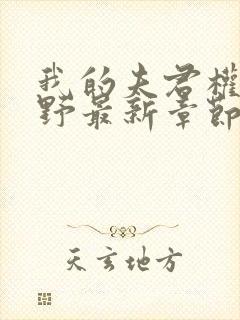 我的夫君權
野最新章節
天玄地方